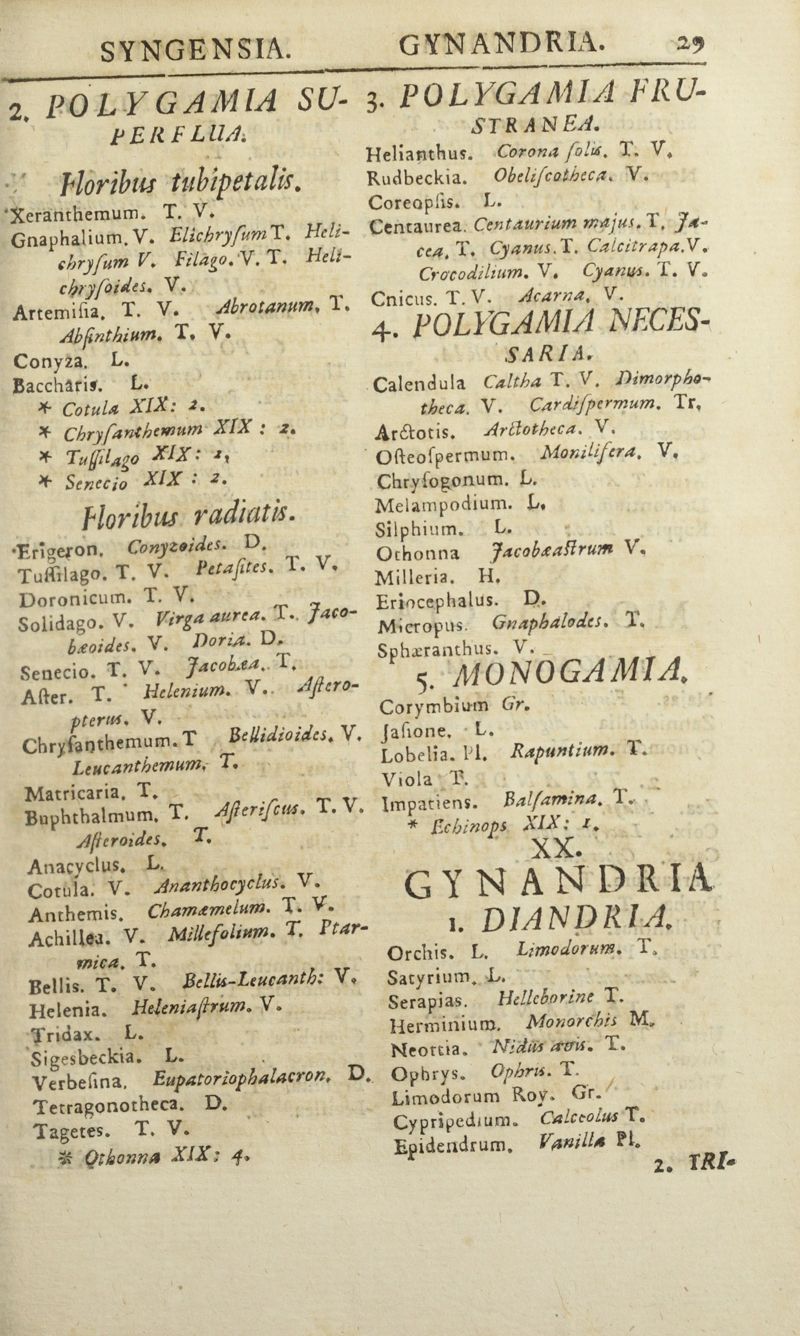 SYNGENSIA. GYNANDRIA. 29
2. POLYGAMIA SU-
PERFLUA.
Floribus tubipetalis.
Xeranthemum. T. V.
Gnaphalium. V. Elichryſum T. Heli-
chryſum V. Filago. V. T. Heli-
chryſoides. V.
Artemiſia. T. V. Abrotanum, T.
Abſinthium. T, V.
Conyza. L.
Baccharis. L.
* Cotula XIX: 2.
* Chryſanthemum XIX : 2.
* Tuſſilago XIX: 2,
* Senecio XIX : 2.
Floribus radiatis.
Erigeron. Conyzoides. D.
Tuſſilago. T. V. Petaſites. T. V.
Doronicum. T. V.
Solidago. V. Virga aurea. T. Jaco-
bæoides. V. Doria. D.
Senecio. T. V. Jacobæa. T.
Aſter. T. Helenium. V. Aſtero-
pterus. V.
Chryſanthemum. T Bellidioides. V.
Leucanthemum, T.
Matricaria. T.
Buphthalmum. T. Aſteriſcus. T. V.
Aſteroides. T.
Anacyclus. L.
Cotula. V. Ananthocyclus. V.
Anthemis. Chamæmelum. T. V.
Achillea. V. Millefolium. T. Ptar-
mica. T.
Bellis. T. V. Bellis-Leucanth: V.
Helenia. Heleniaſtrum. V.
Tridax. L.
Sigesbeckia. L.
Verbeſina. Eupatoriophalacron. D.
Tetragonotheca. D.
Tagetes. T. V.
* Othonna XIX: 4.
3. POLYGAMIA FRU-
STRANEA.
Helianthus. Corona ſolis. T. V.
Rudbeckia. Obeliſcotheca. V.
Coreopſis. L.
Centaurea. Centaurium majus. T. Ja-
cea, T. Cyanus. T. Calcitrapa. V.
Crocodilium. V. Cyanus. T. V.
Cnicus. T. V. Acarna. V.
4. POLYGAMIA NECES-
SARIA.
Calendula Caltha T. V. Dimorpho-
theca. V. Cardiſpermum. Tr,
Arctotis. Arctotheca. V.
Oſteoſpermum. Monilifera. V.
Chryſogonum. L.
Melampodium. L,
Silphium. L.
Othonna Jacobæaſtrum V.
Milleria. H.
Eriocephalus. D.
Micropus. Gnaphalodes. T.
Sphæranthus. V.
5. MONOGAMIA.
Corymbium Gr.
Jaſione. L.
Lobelia. Pl. Rapuntium. T.
Viola T.
Impatiens. Balſamina. T.
* Echinops XIX: 1.
XX.
GYNANDRIA
1. DIANDRIA.
Orchis. L. Limodorum. T.
Satyrium. L.
Serapias. Helleborine T.
Herminium. Monorchis M.
Neottia. Nidus avis. T.
Ophrys. Ophris. T.
Limodorum Roy. Gr.
Cypripedium. Calceolus T.
Epidendrum. Vanilla Pl.
2. TRI-